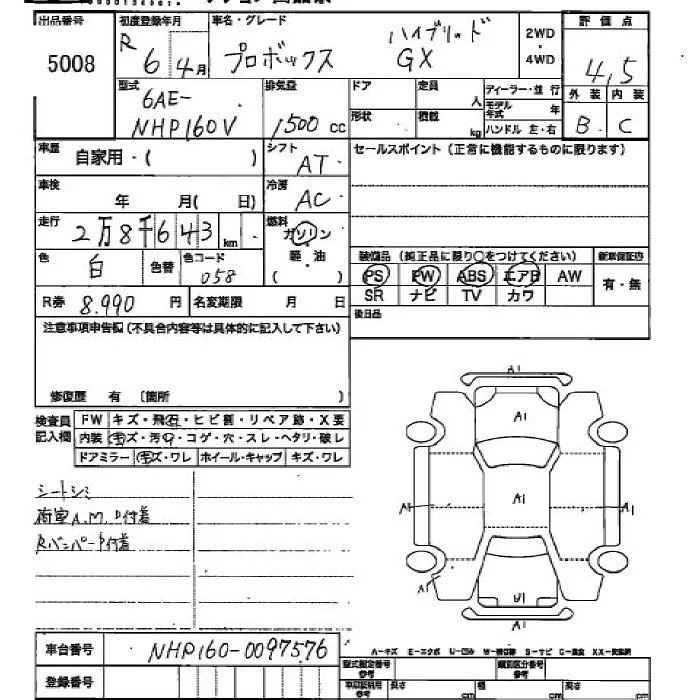 出品番号 初度登録年月 車名・グレード 評価点
5008 R 6 4月 プロボックス ハイブリッド GX 2WD・4WD 4.5
型式 6AE-NHP160V 排気量 1500 cc ドア 定員 人 ディーラー・並行
形状 積載 kg モデル年式 年
ハンドル 左・右
外装 内装
B C
車歴 自家用・( ) シフト AT セールスポイント (正常に機能するものに限ります)
車検 年 月( 日) 冷房 AC
走行 2万8千643 km 燃料 ガソリン
軽・油
( )
色 白 色替 色コード 058
装備品 (純正品に限り○をつけてください) 新車保証書
PS PW ABS エアB AW 有・無
SR ナビ TV カワ
R券 8.990 円 名変期限 月 日
後日品
注意事項申告欄 (不具合内容等は具体的に記入して下さい)
修復歴 有 〔箇所 〕
検査員記入欄 FW キズ・飛石・ヒビ割・リペア跡・X要
内装 キズ・汚レ・コゲ・穴・スレ・ヘタリ・破レ
ドアミラー キズ・ワレ ホイール・キャップ キズ・ワレ
シートシミ
荷室A.M.P付着
RバンパーP付着
A1
A1
A1 A1 A1
A1
A1
A1
車台番号 NHP160-0097576
A-キズ E-エクボ U-凹み W-補修跡 S-サビ C-腐食 XX-交換済
登録番号
型式指定番号 参考 類別区分番号 参考
参考 長さ cm 幅 cm 高さ cm